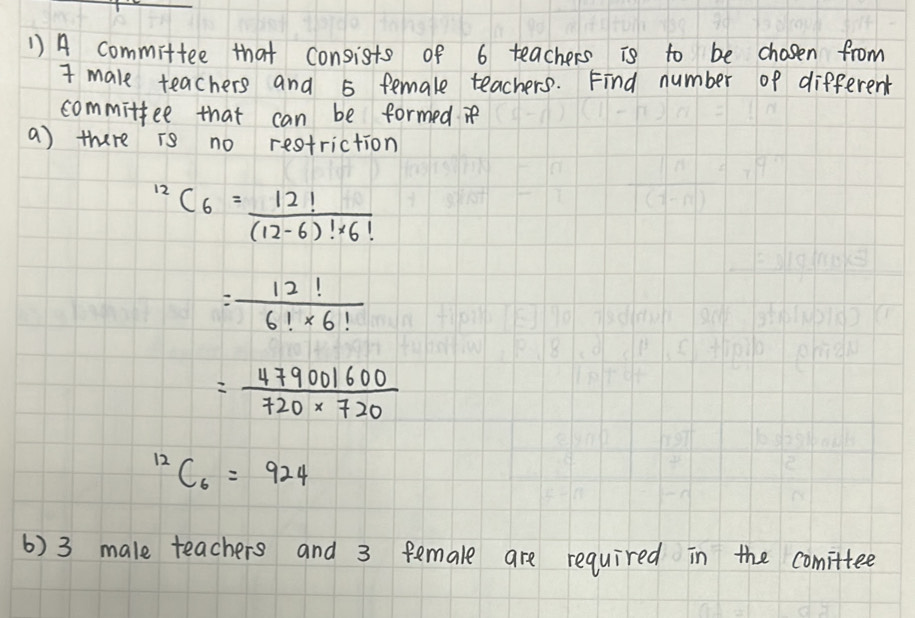 1) A committee that consists of 6 teachers is to be chosen from
7 male teachers and 5 female teachers. Find number of different
committee that can be formed if
a) there is no restriction
¹²C₆ = 12! / (12-6)!×6!
= 12! / 6! × 6!
= 479001600 / 720 × 720
¹²C₆ = 924
b) 3 male teachers and 3 female are required in the comittee